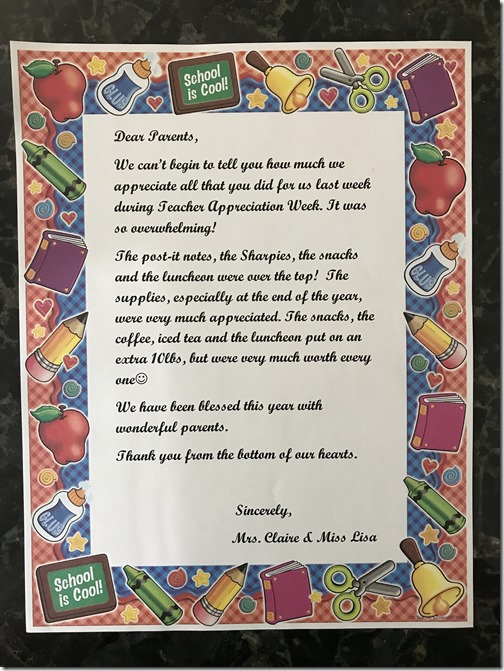 School
is Cool!
GLUE
Dear Parents,
We can't begin to tell you how much we
appreciate all that you did for us last week
during Teacher Appreciation Week. It was
so overwhelming!
The post-it notes, the Sharpies, the snacks
and the luncheon were over the top!  The
supplies, especially at the end of the year,
were very much appreciated. The snacks, the
coffee, iced tea and the luncheon put on an
extra 10lbs, but were very much worth every
one☺
We have been blessed this year with
wonderful parents.
Thank you from the bottom of our hearts.
Sincerely,
Mrs. Claire & Miss Lisa
GLUE
GLUE
School
is Cool!